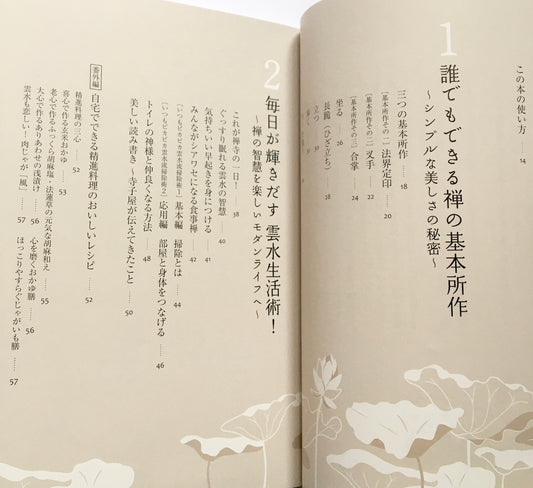 この本の使い方 …… 14
1
誰でもできる禅の基本所作
～シンプルな美しさの秘密～
三つの基本所作 …… 18
［基本所作その一］法界定印 …… 20
［基本所作その二］叉手
［基本所作その三］合掌 …… 24
坐る …… 26
長跪（ひざ立ち）
立つ
歩く
2
毎日が輝きだす 雲水生活術！
～禅の智慧を楽しいモダンライフへ～
これが禅寺の一日！ …… 38
ぐっすり眠れる雲水の智慧 …… 40
気持ちいい早起きを身につける …… 41
みんながシアワセになる食事禅 …… 42
［いつもピカピカ雲水流掃除術1］基本編 掃除とは …… 44
［いつもピカピカ雲水流掃除術2］応用編 部屋と身体をつなげる …… 46
トイレの神様と仲良くなる方法 …… 48
美しい読み書き～寺子屋が伝えてきたこと …… 50
番外編 自宅でできる精進料理のおいしいレシピ …… 52
精進料理の三心 …… 52
喜心で作る玄米おかゆ …… 53
老心で作るふっくら胡麻塩・法蓮草の元気な胡麻和え …… 55
大心で作るありあわせの浅漬け …… 56
心を磨くおかゆ膳 …… 56
雲水も恋しい！肉じゃが「風」 …… 57
ほっこりやすらぐじゃがいも膳 …… 57